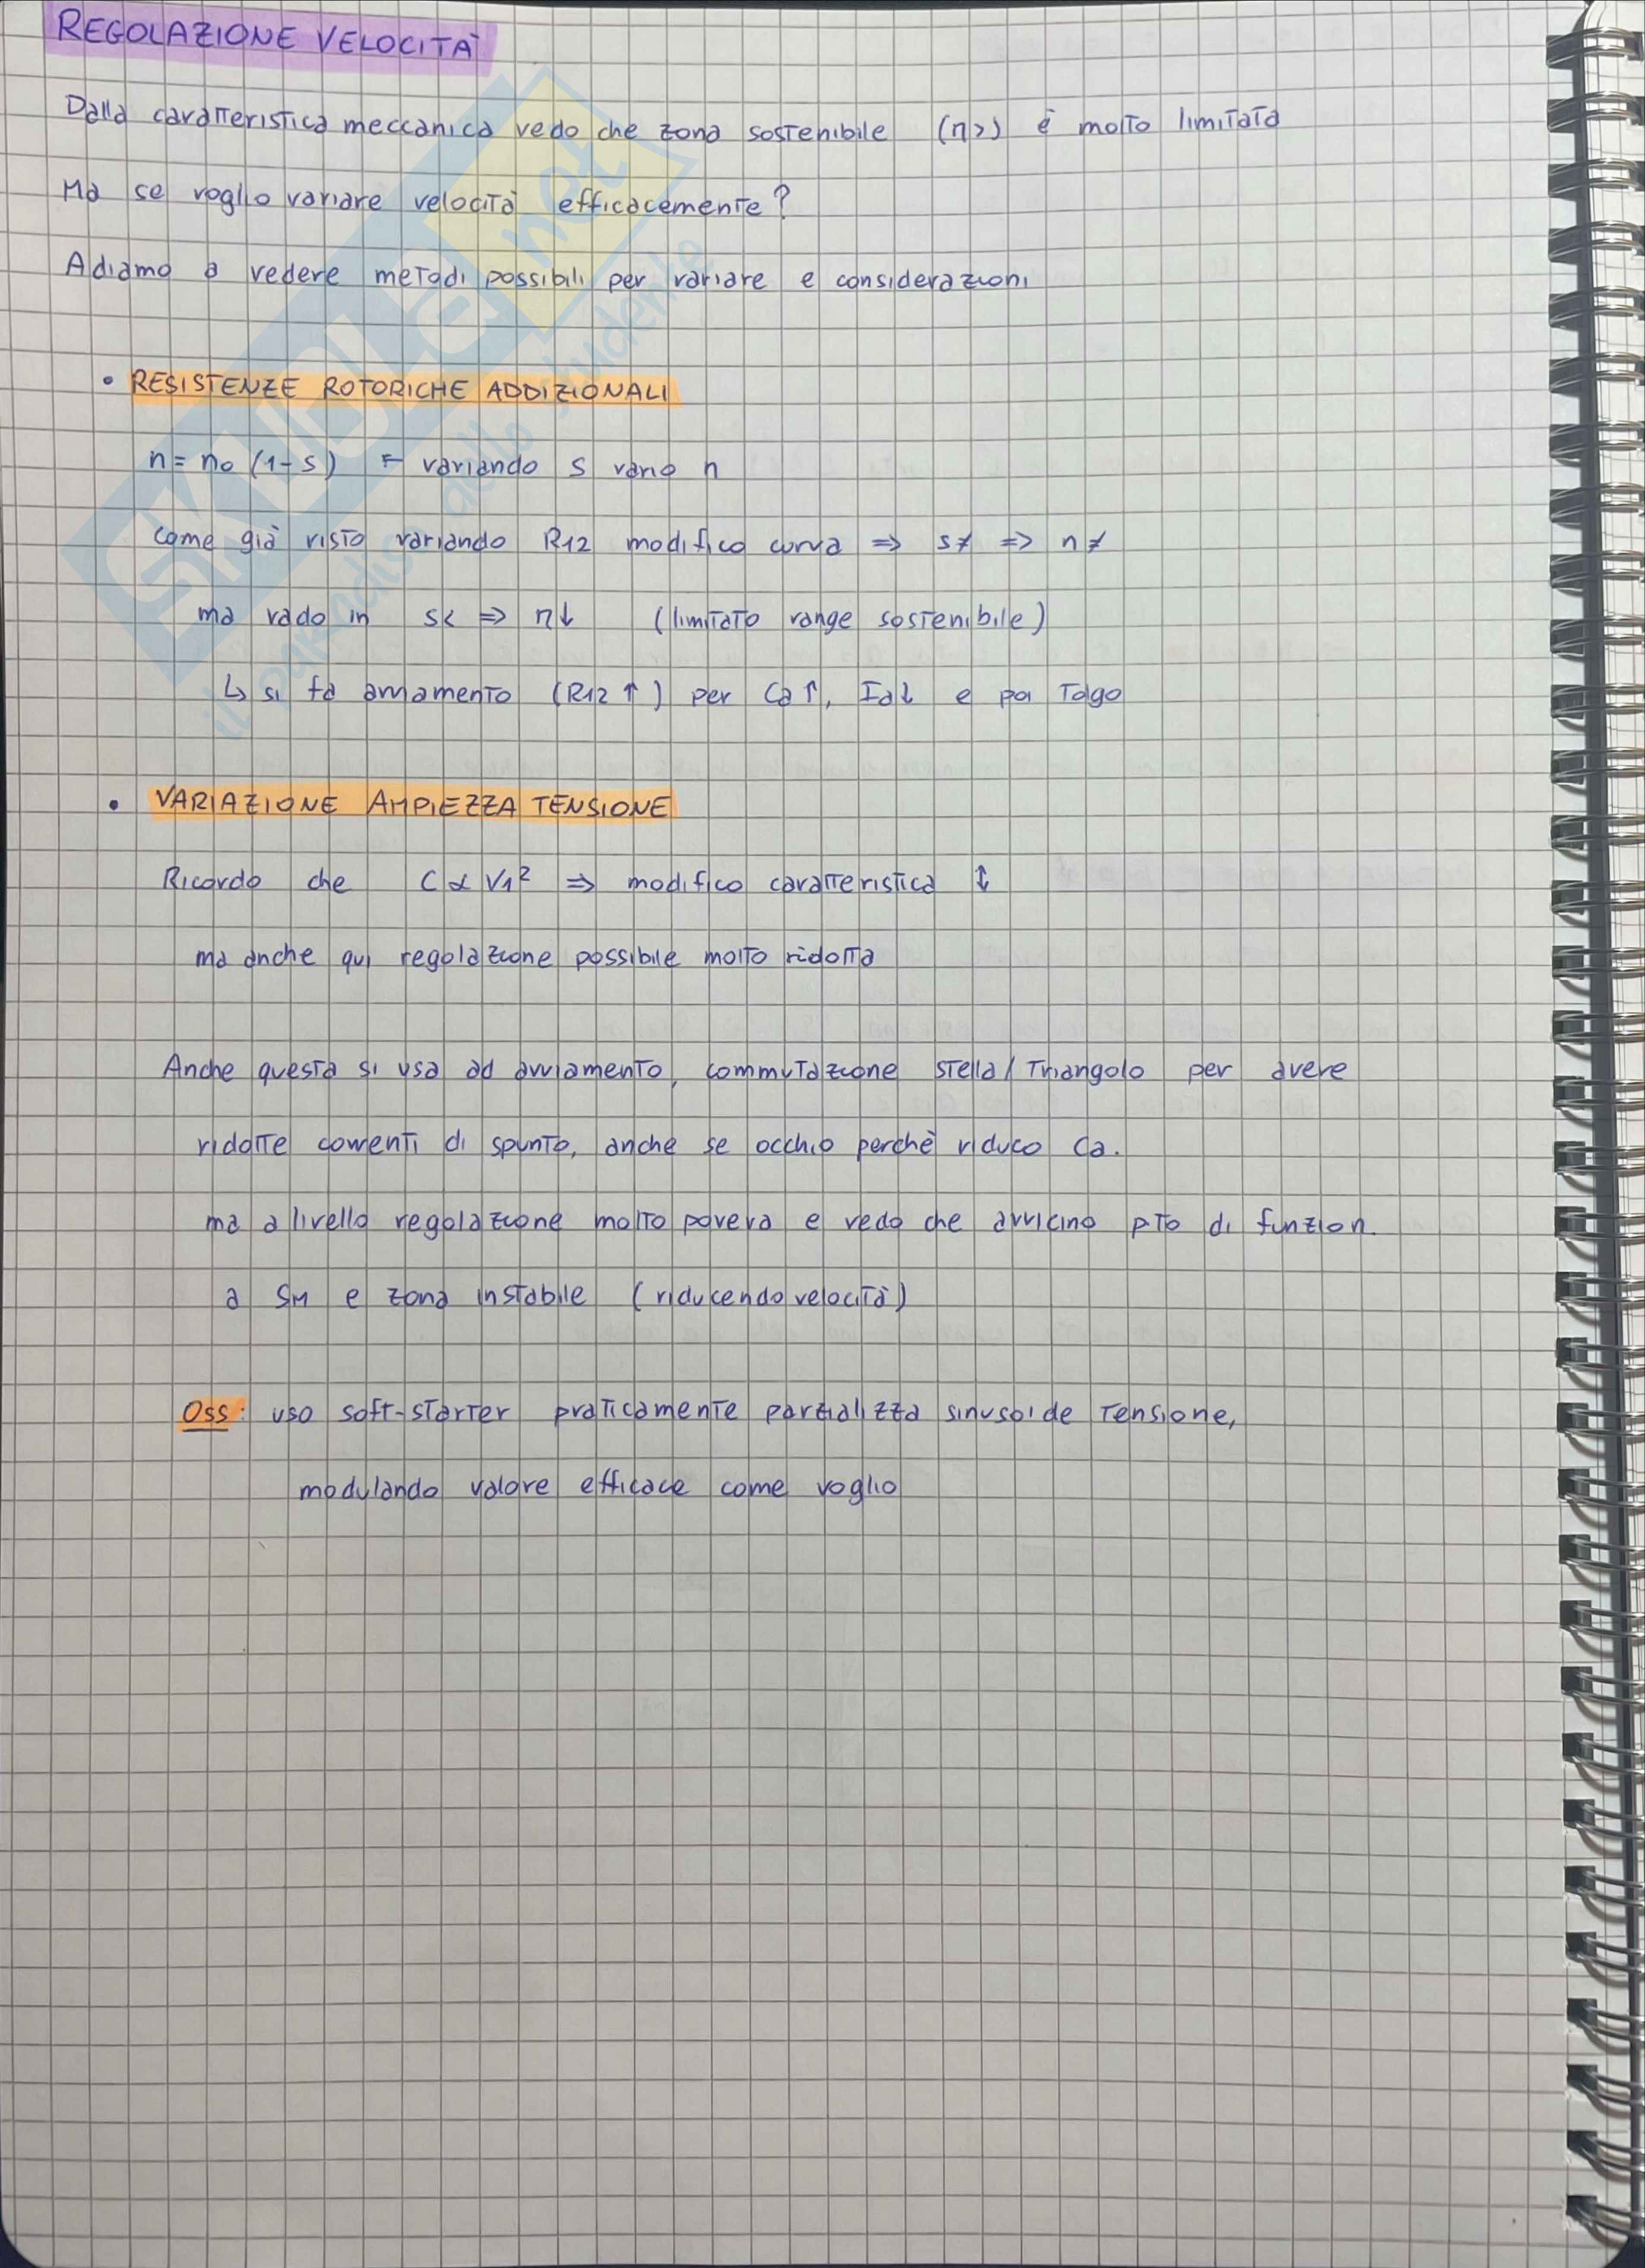 REGOLAZIONE VELOCITÀ
Dalla caratteristica meccanica vedo che zona sostenibile (η>) è molto limitata
Ma se voglio variare velocità efficacemente?
Adiamo a vedere metodi possibili per variare e considerazioni
• RESISTENZE ROTORICHE ADDIZIONALI
n = n0 (1-s) ← variando s vario n
come già visto variando R12 modifico curva ⇒ s≠ ⇒ n≠
ma vado in s< ⇒ η↓ (limitato range sostenibile)
↳ si fa avviamento (R12 ↑) per Ca↑, Ia↓ e poi tolgo
• VARIAZIONE AMPIEZZA TENSIONE
Ricordo che C ∝ V1² ⇒ modifico caratteristica ↕
ma anche qui regolazione possibile molto ridotta
Anche questa si usa ad avviamento, commutazione stella/triangolo per avere
ridotte correnti di spunto, anche se occhio perchè riduco Ca.
ma a livello regolazione molto povera e vedo che avvicino pto di funzion.
a SM e zona instabile (riducendo velocità)
Oss: uso soft-starter praticamente parzializza sinusoide tensione,
modulando valore efficace come voglio
SKUOLA.net
il paradiso dello studente